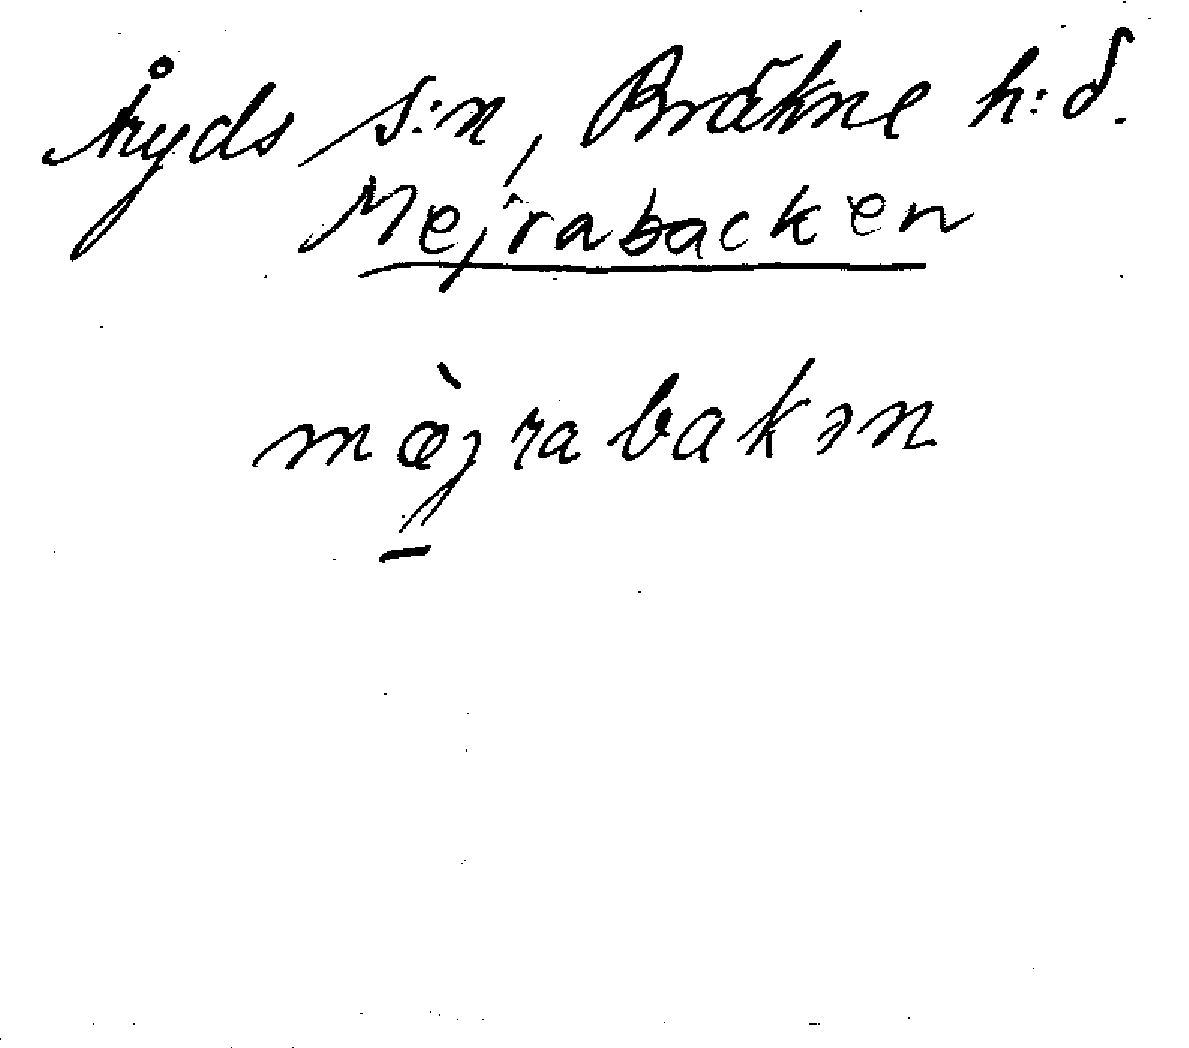 Åryds s:n, Bräkne h:d.
Mejrabacken
mæ̀jrabakən